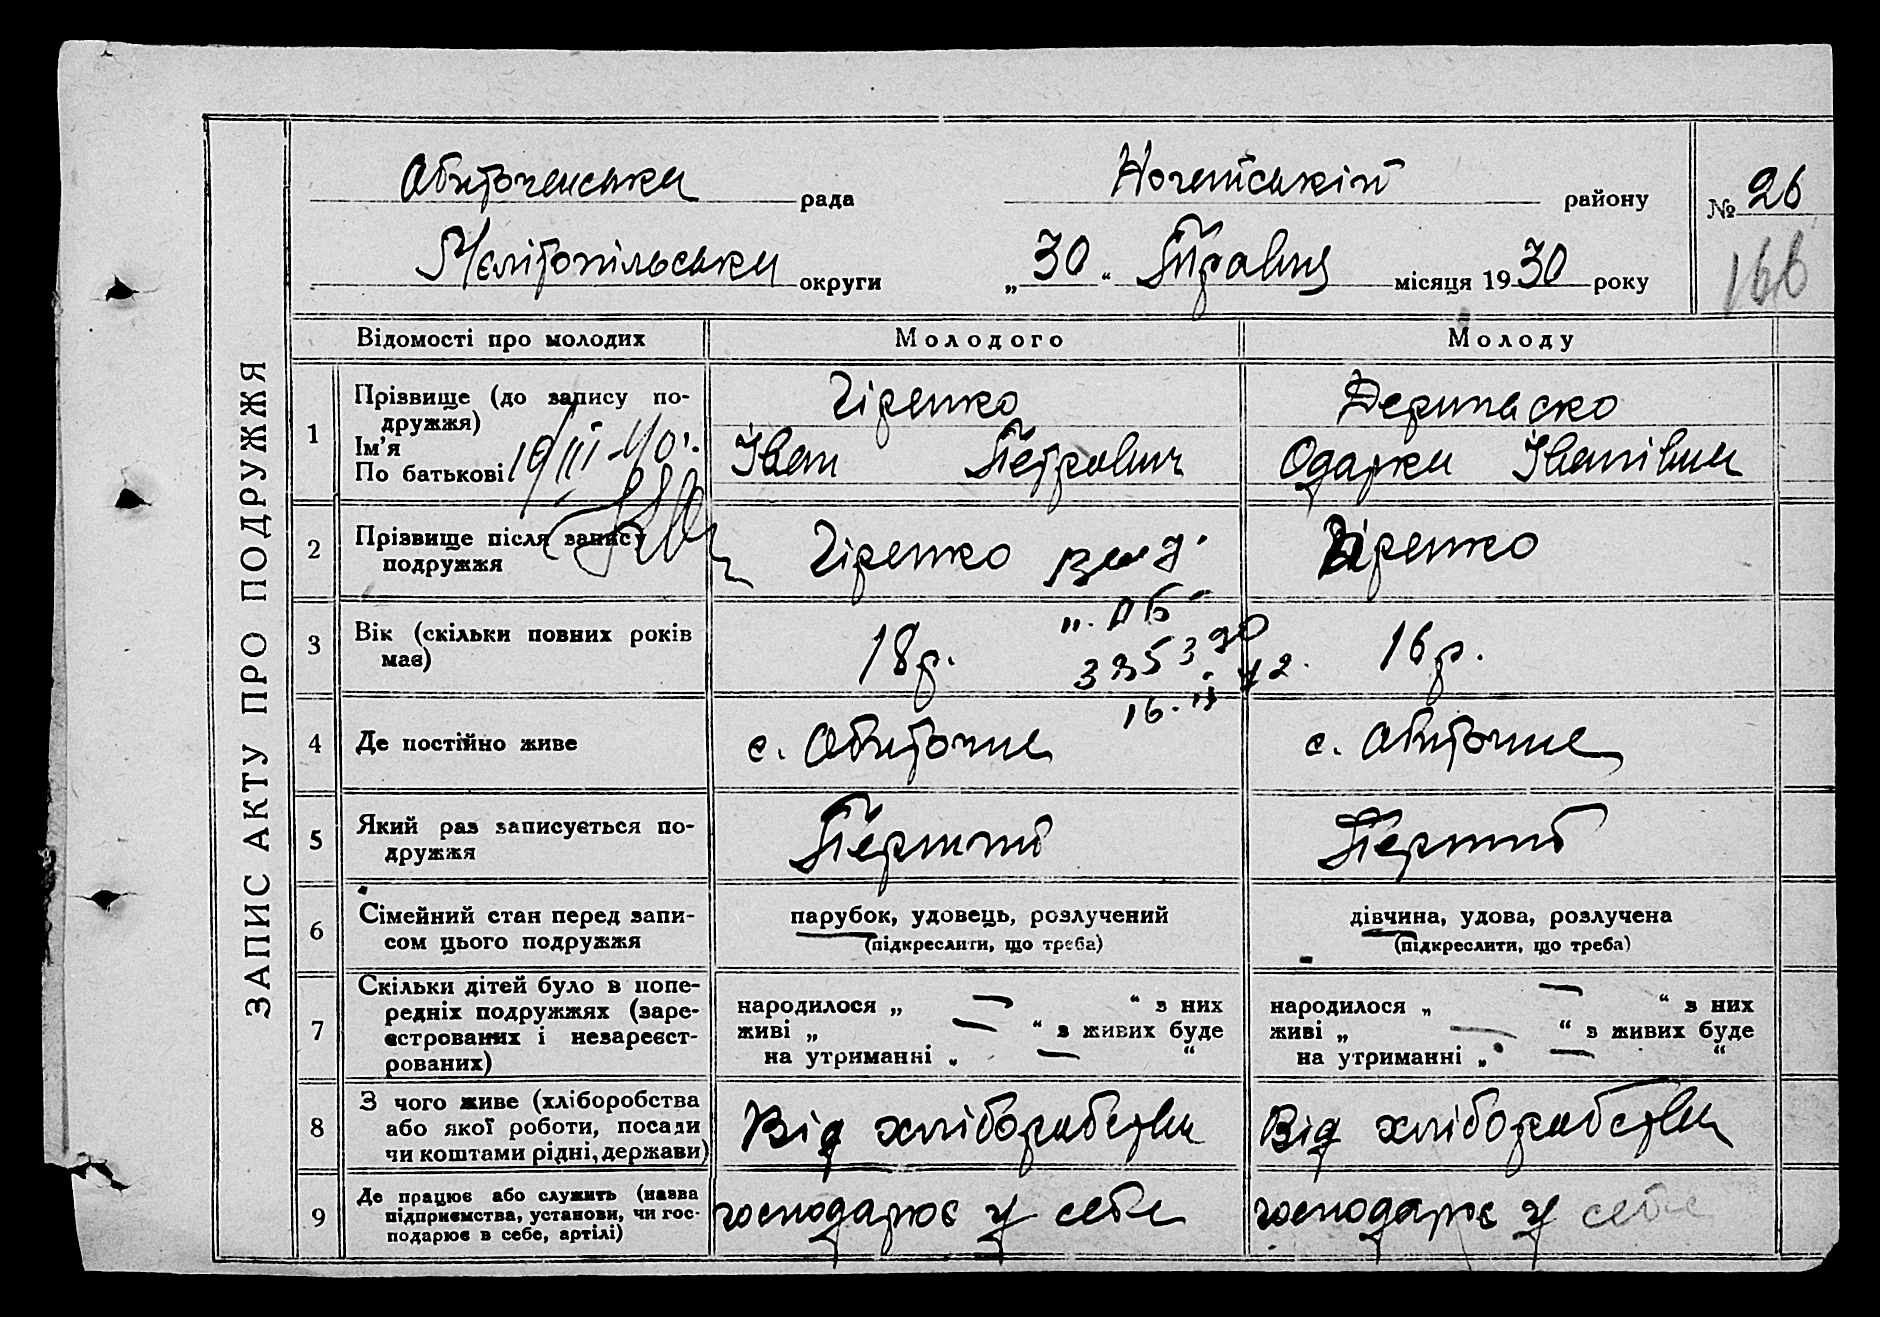 ЗАПИС АКТУ ПРО ПОДРУЖЖЯ
Обиточенська рада Ногайський району № 26
166
Мелітопільська округи „30“ Травня місяця 1930 року
Відомості про молодих Молодого Молоду
1 Прізвище (до запису по-
дружжя)
Ім'я
По батькові
19/III-40.
Гіренко
Іван Петрович
Дерипаско
Одарка Іванівна
2 Прізвище після запису
подружжя
Гіренко
Гіренко
3 Вік (скільки повних років
має)
18 р.
16 р.
4 Де постійно живе
с. Обиточне
с. Обиточне
5 Який раз записується по-
дружжя
Перший
Перший
6 Сімейний стан перед запи-
сом цього подружжя
парубок, удовець, розлучений
(підкреслити, що треба)
дівчина, удова, розлучена
(підкреслити, що треба)
7 Скільки дітей було в попе-
редніх подружжях (заре-
єстрованих і незареєст-
рованих)
народилося „ — “ з них
живі „ — “ з живих буде
на утриманні „ — “
народилося „ — “ з них
живі „ — “ з живих буде
на утриманні „ — “
8 З чого живе (хліборобства
або якої роботи, посади
чи коштами рідні, держави)
Від хліборобства
Від хліборобства
9 Де працює або служить (назва
підприємства, установи, чи гос-
подарює в себе, артілі)
господарює у себе
господарює у себе